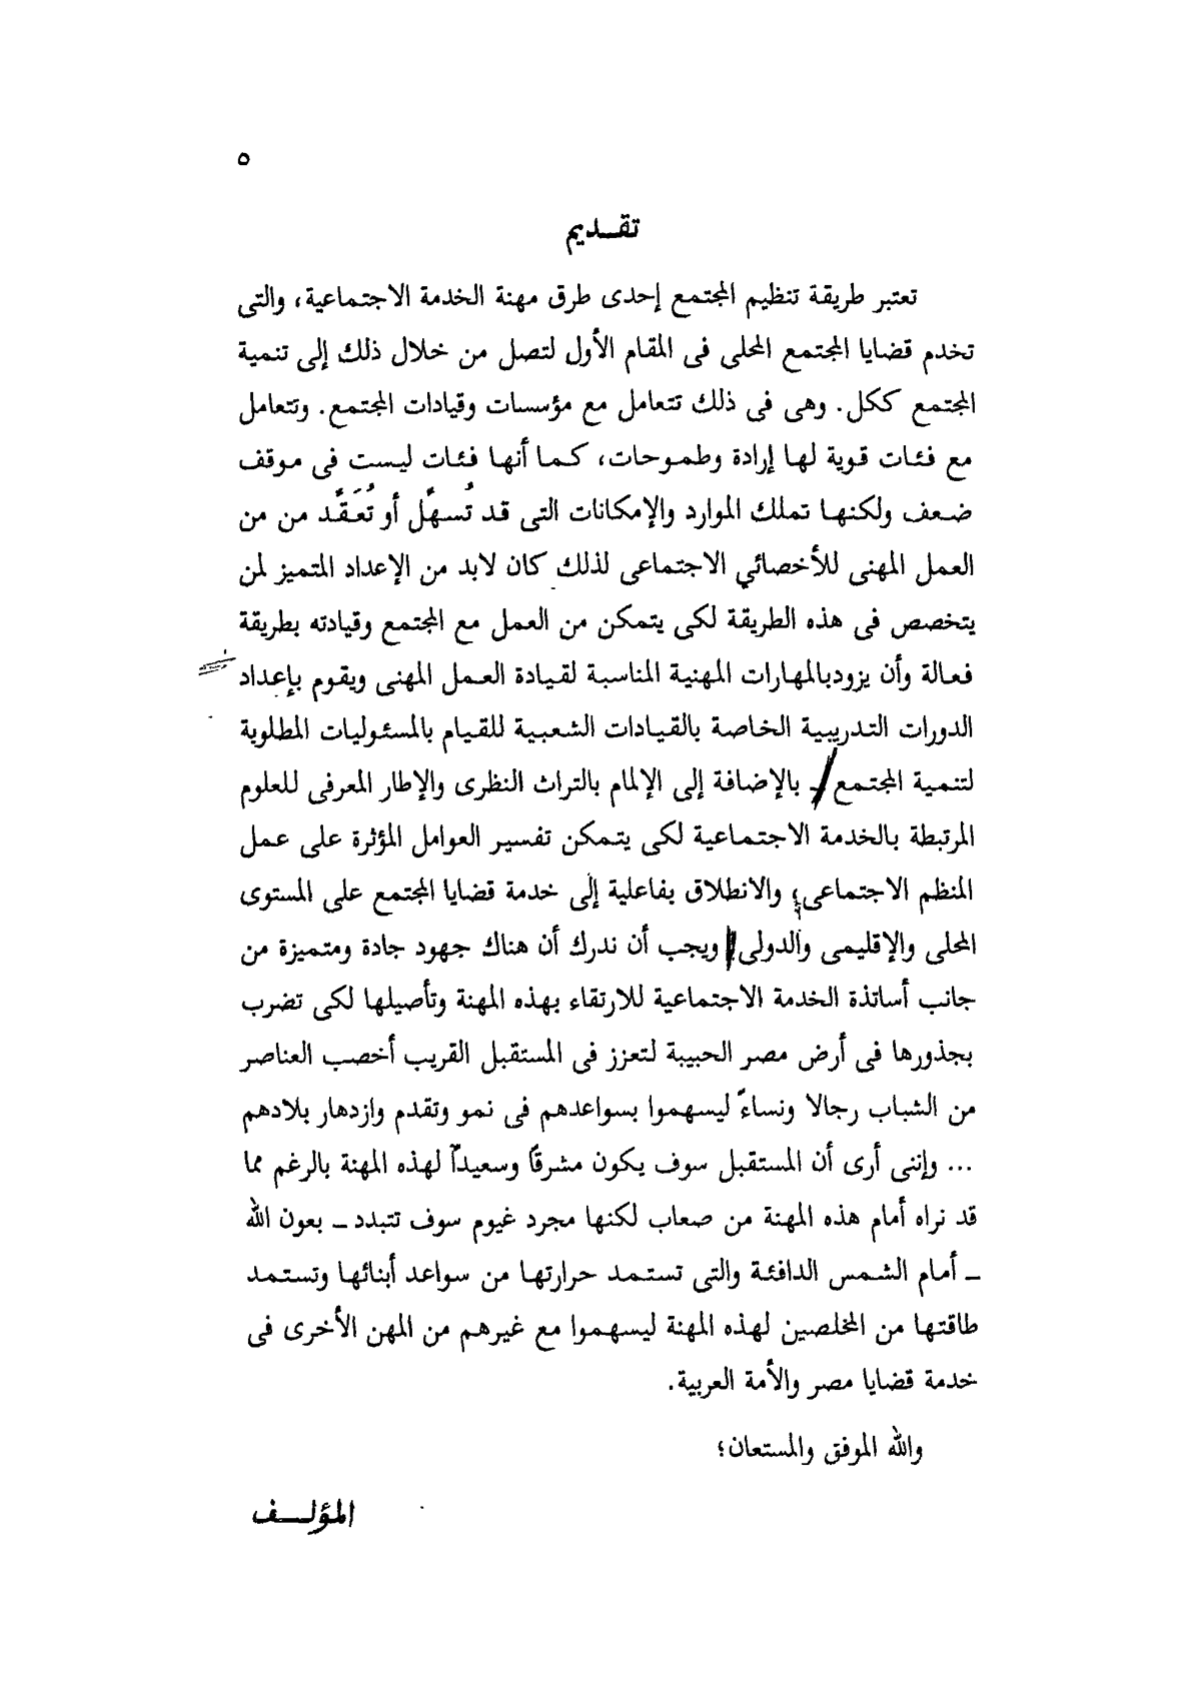 ٥
تقـديم
تعتبر طريقة تنظيم المجتمع إحدى طرق مهنة الخدمة الاجتماعية، والتى
تخدم قضايا المجتمع المحلى فى المقام الأول لتصل من خلال ذلك إلى تنمية
المجتمع ككل. وهى فى ذلك تتعامل مع مؤسسات وقيادات المجتمع. وتتعامل
مع فئات قوية لها إرادة وطموحات، كما أنها فئات ليست فى موقف
ضعف ولكنها تملك الموارد والإمكانات التى قد تُسهَّل أو تُعَقَّد من من
العمل المهنى للأخصائي الاجتماعى لذلك كان لابد من الإعداد المتميز لمن
يتخصص فى هذه الطريقة لكى يتمكن من العمل مع المجتمع وقيادته بطريقة
فعالة وأن يزودبالمهارات المهنية المناسبة لقيادة العمل المهنى ويقوم بإعداد
الدورات التدريبية الخاصة بالقيادات الشعبية للقيام بالمسئوليات المطلوية
لتنمية المجتمع ـ بالإضافة إلى الإلمام بالتراث النظرى والإطار المعرفى للعلوم
المرتبطة بالخدمة الاجتماعية لكى يتمكن تفسير العوامل المؤثرة على عمل
المنظم الاجتماعى، والانطلاق بفاعلية إلى خدمة قضايا المجتمع على المستوى
المحلى والإقليمى والدولى ويجب أن ندرك أن هناك جهود جادة ومتميزة من
جانب أساتذة الخدمة الاجتماعية للارتقاء بهذه المهنة وتأصيلها لكى تضرب
بجذورها فى أرض مصر الحبيبة لتعزز فى المستقبل القريب أخصب العناصر
من الشباب رجالا ونساءً ليسهموا بسواعدهم فى نمو وتقدم وازدهار بلادهم
... وإننى أرى أن المستقبل سوف يكون مشرقًا وسعيداً لهذه المهنة بالرغم مما
قد نراه أمام هذه المهنة من صعاب لكنها مجرد غيوم سوف تتبدد ـ بعون الله
ـ أمام الشمس الدافئة والتى تستمد حرارتها من سواعد أبنائها وتستمد
طاقتها من المخلصين لهذه المهنة ليسهموا مع غيرهم من المهن الأخرى فى
خدمة قضايا مصر والأمة العربية.
والله الموفق والمستعان؛
المؤلـــف